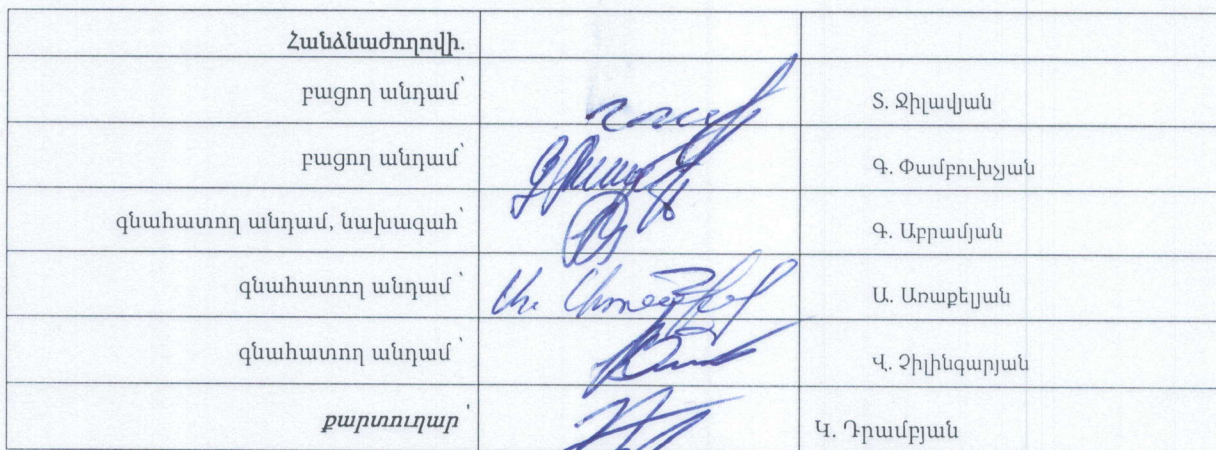 Հանձնաժողովի.
բացող անդամ՝ Տ. Ջիլավյան
բացող անդամ՝ Գ. Փամբուխչյան
գնահատող անդամ, նախագահ՝ Գ. Աբրամյան
գնահատող անդամ ՝ Ա. Առաքելյան
գնահատող անդամ ՝ Վ. Չիլինգարյան
քարտուղար ՝ Կ. Դրամբյան